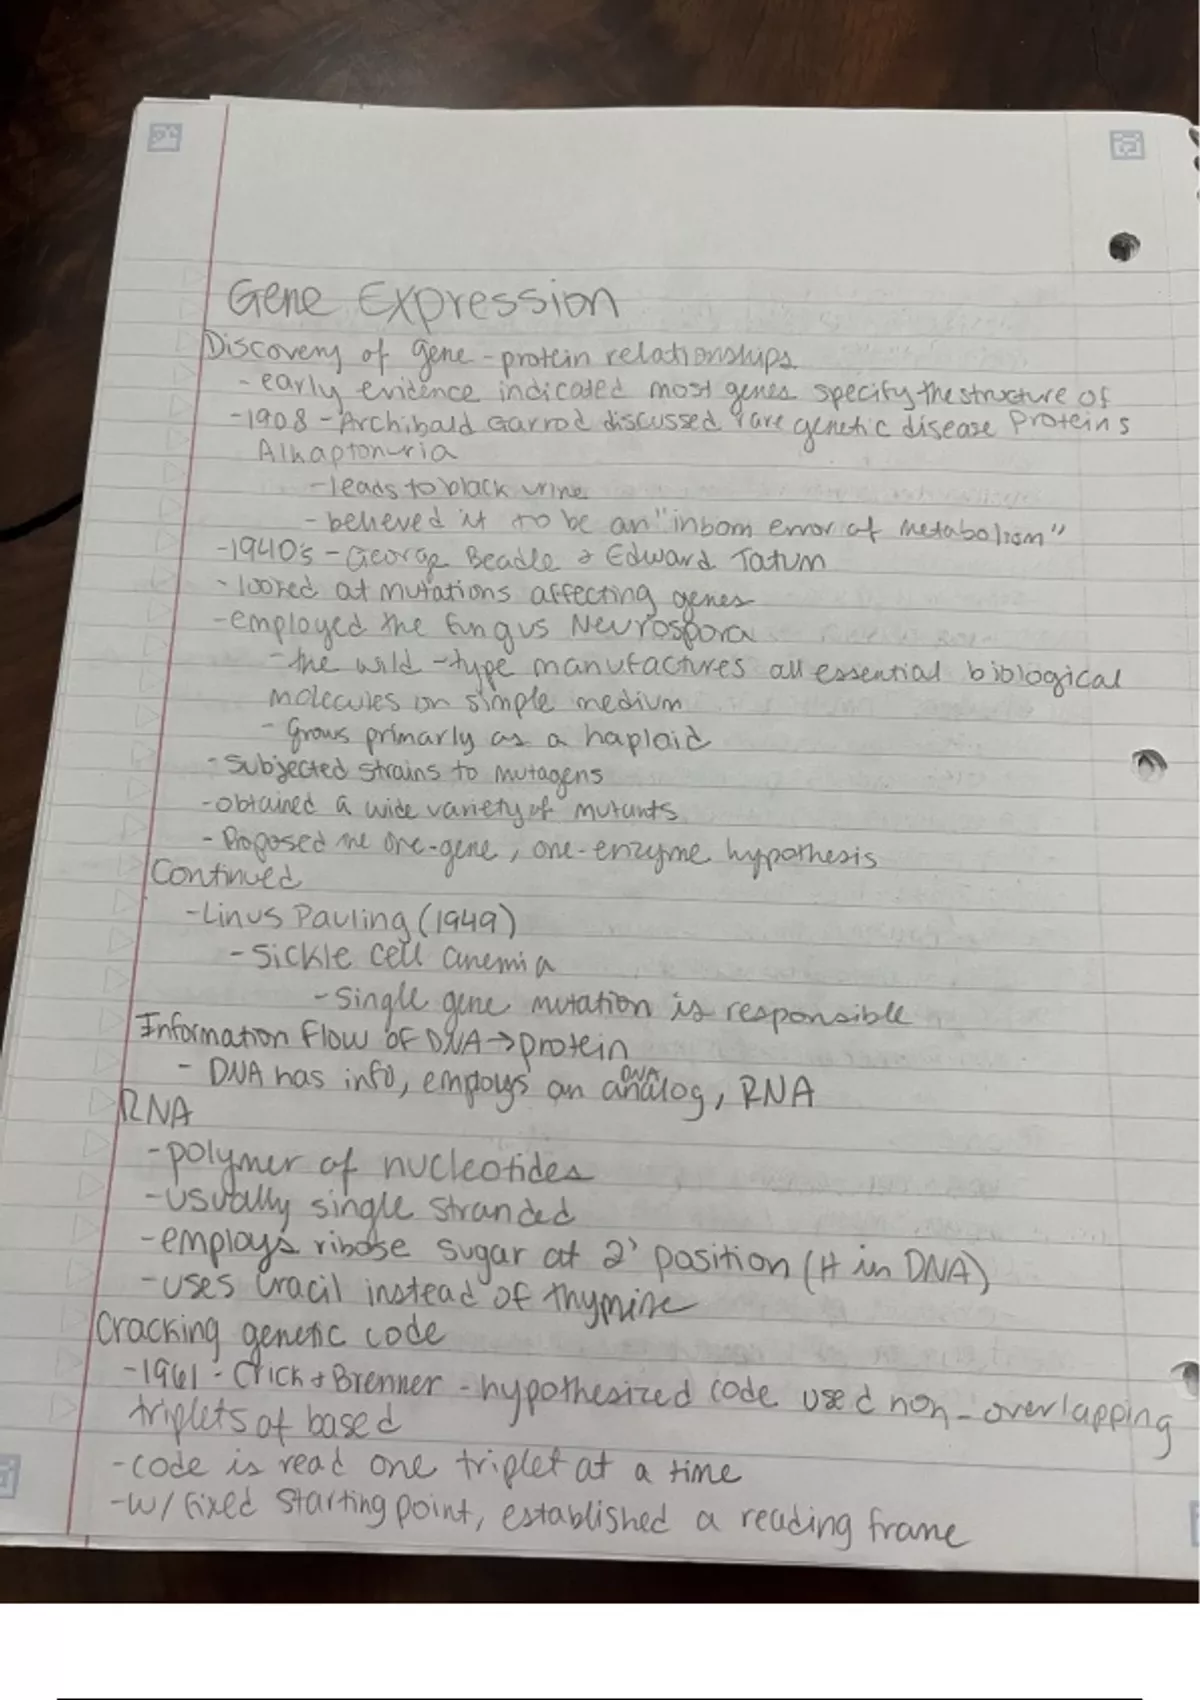 Gene Expression
Discovery of gene-protein relationships
- early evidence indicated most genes specify the structure of
Proteins
- 1908 - Archibald Garrod discussed rare genetic disease
Alkaptonuria
- leads to black urine
- believed it to be an "inborn error of metabolism"
- 1940's - George Beadle & Edward Tatum
- looked at mutations affecting genes
- employed the fungus Neurospora
- the wild-type manufactures all essential biological
molecules on simple medium
- Grows primarly as a haploid
- Subjected strains to mutagens
- obtained a wide variety of mutants
- Proposed the one-gene, one-enzyme hypothesis
Continued
- Linus Pauling (1949)
- Sickle cell anemia
- single gene mutation is responsible
Information flow of DNA → protein
- DNA has info, employs an DNA analog, RNA
RNA
- polymer of nucleotides
- usually single stranded
- employs ribose sugar at 2' position (H in DNA)
- uses Uracil instead of thymine
Cracking genetic code
- 1961 - Crick & Brenner - hypothesized code used non-overlapping
triplets of based
- code is read one triplet at a time
- w/ fixed starting point, established a reading frame